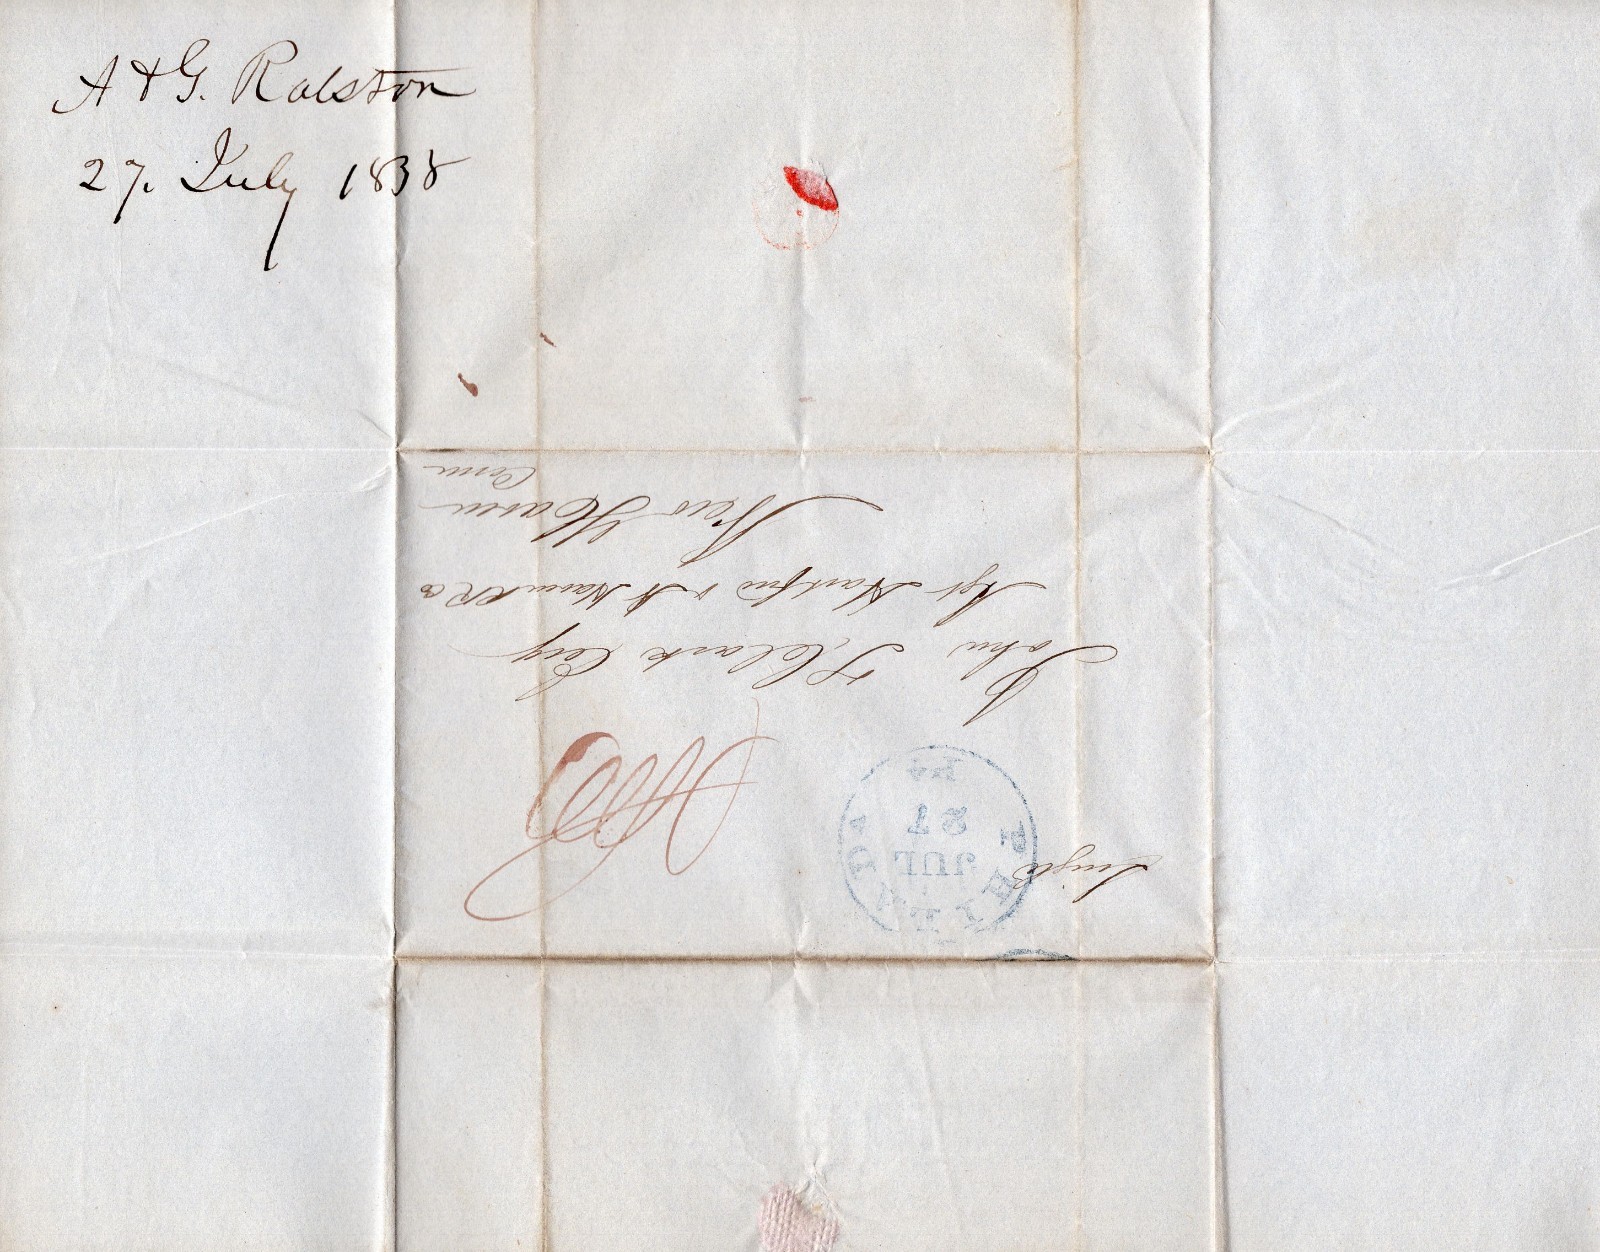 A & G. Ralston
27. July 1838
Single
PHILADA
JUL
27
Pa
John T. Clark Esq
Agt Hartford & N Haven RR Co
New Haven
Conn